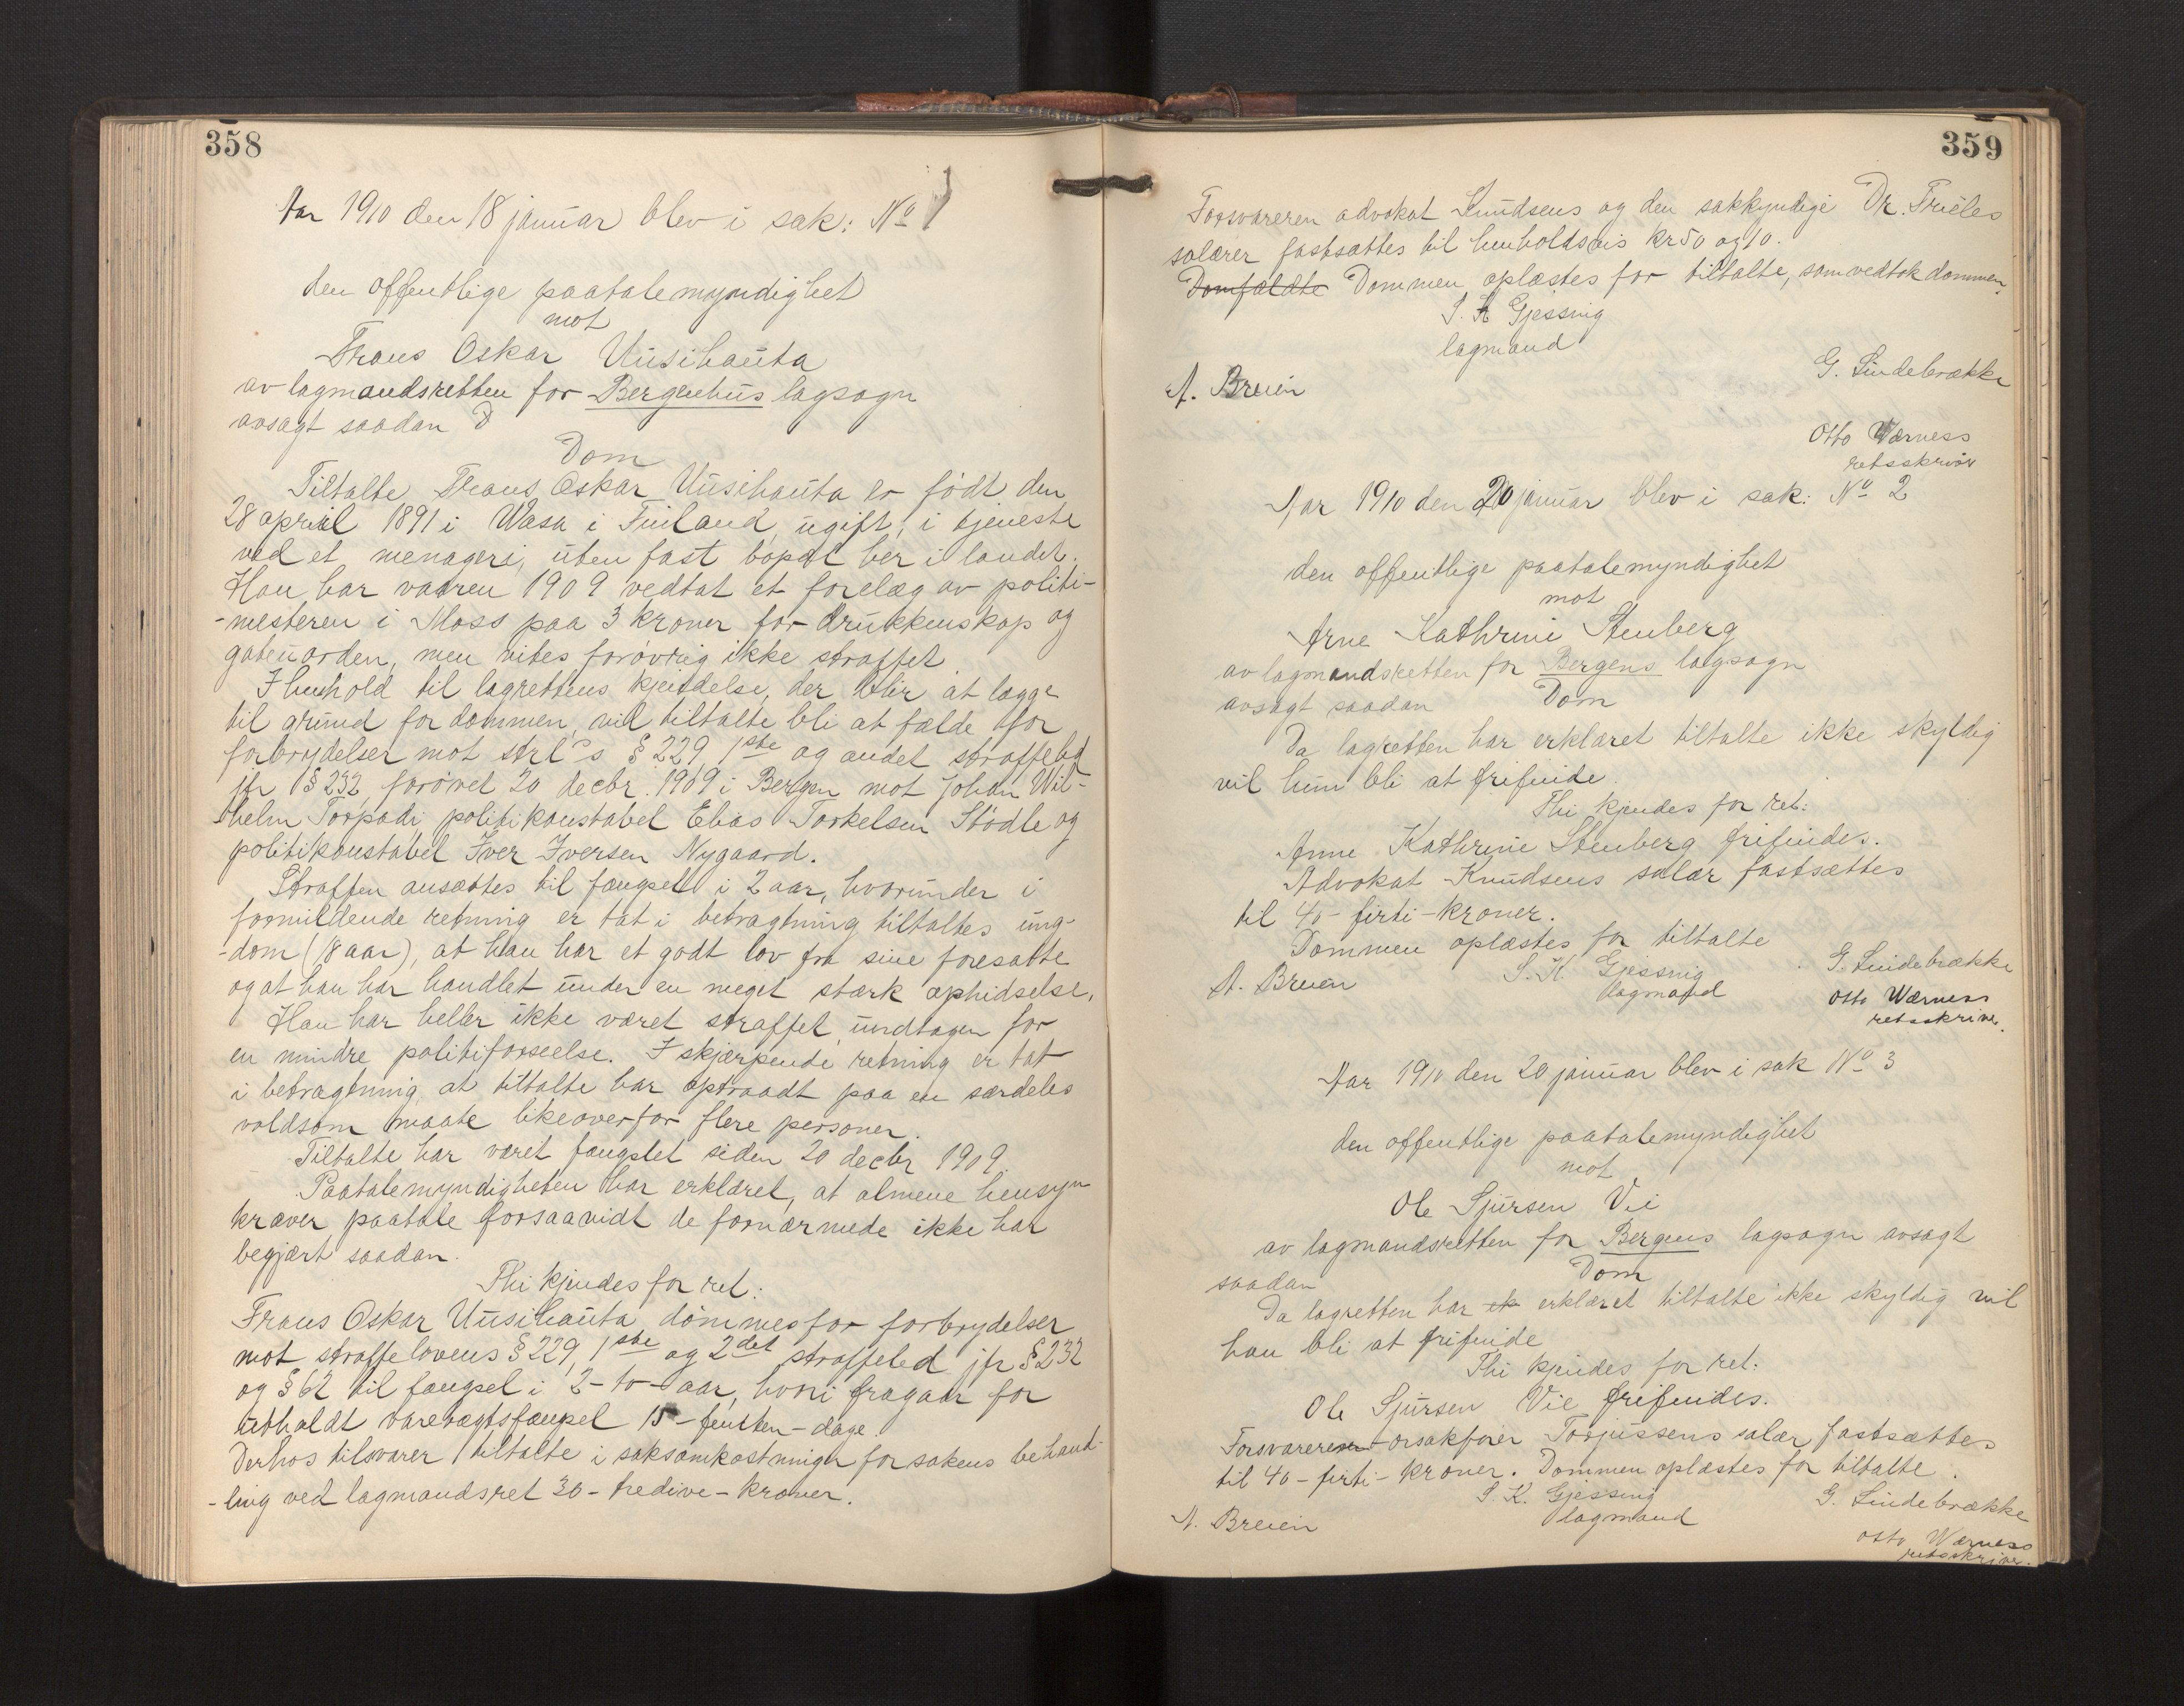 358
Aar 1910 den 18 januar blev i sak: No 1
den offentlige paatalemyndighet
mot
Frans Oskar Uusihauta
av lagmandsretten for Bergenhus lagsogn
avsagt saadan D
Dom
Tiltalte Frans Oskar Uusihauta er født den
28 april 1891 i Wasa i Finland, ugift, i tjeneste
ved et menageri, uten fast bopæl her i landet.
Han har vaaren 1909 vedtat et forelæg av politi-
-mesteren i Moss paa 3 kroner for drukkenskap og
gateuorden, men vites forøvrig ikke straffet.
I henhold til lagrettens kjendelse, der blir at lægge
til grund for dommen, vil tiltalte bli at fælde for
forbrydelser mot strl's § 229, 1ste og andet straffeled
jfr § 232, forøvet 20 decbr. 1909 i Bergen mot Johan Wil-
-helm Torpadi, politikonstabel Elias Torkelsen Stødle og
politikonstabel Iver Iversen Nygaard.
Straffen ansættes til fængsel i 2 aar, hvorunder i
formildende retning er tat i betragtning tiltaltes ung-
-dom (18 aar), at han har et godt lov fra sine foresatte
og at han har handlet under en meget stærk ophidselse.
Han har heller ikke været straffet undtagen for
en mindre politiforseelse. I skjærpende retning er tat
i betragtning, at tiltalte har optraadt paa en særdeles
voldsom maate likeoverfor flere personer.
Tiltalte har været fængslet siden 20 decbr 1909.
Paatalemyndigheten har erklæret, at almene hensyn
kræver paatale forsaavidt de fornærmede ikke har
begjært saadan.
Thi kjendes for ret:
Frans Oskar Uusihauta dømmes for forbrydelser
mot straffelovens § 229, 1ste og 2det straffeled jfr § 232
og § 62 til fængsel i 2-to-aar, hvori fragaar for
utholdt varetægtsfængsel 15-femten-dage.
Derhos tilsvarer tiltalte i saksomkostninger for sakens behand-
-ling ved lagmandsret 30-tredive-kroner.
359
Forsvareren advokat Knudsens og den sakkyndige Dr. Frieles
salærer fastsættes til henholdsvis kr 50 og 10.
Domfældte Dommen oplæstes for tiltalte, som vedtok dommen.
S. K Gjessing
lagmand
G. Lindebrække
A. Breien
Otto Wærness
retsskriver
Aar 1910 den 20 januar blev i sak: No 2
den offentlige paatalemyndighet
mot
Arne Kathrine Stenberg
av lagmandsretten for Bergens lagsogn
avsagt saadan Dom
Da lagretten har erklæret tiltalte ikke skyldig
vil hun bli at frifinde.
Thi kjendes for ret:
Anne Kathrine Stenberg frifindes.
Advokat Knudsens salær fastsættes
til 40-firti-kroner.
Dommen oplæstes for tiltalte
A. Breien S. K. Gjessing G. Lindebrække
lagmand Otto Wærness
retsskriver.
Aar 1910 den 20 januar blev i sak No 3
den offentlige paatalemyndighet
mot
Ole Sjursen Vie
av lagmandsretten for Bergens lagsogn avsagt
saadan Dom
Da lagretten har ik erklæret tiltalte ikke skyldig vil
han bli at frifinde
Thi kjendes for ret:
Ole Sjursen Vie frifindes.
Forsvareren orsakfører Torjussens salær fastsættes
til 40-firti-kroner. Dommen oplæstes for tiltalte.
S. K. Gjessing G. Lindebrække
A. Breien lagmand
Otto Wærness
retsskriver.